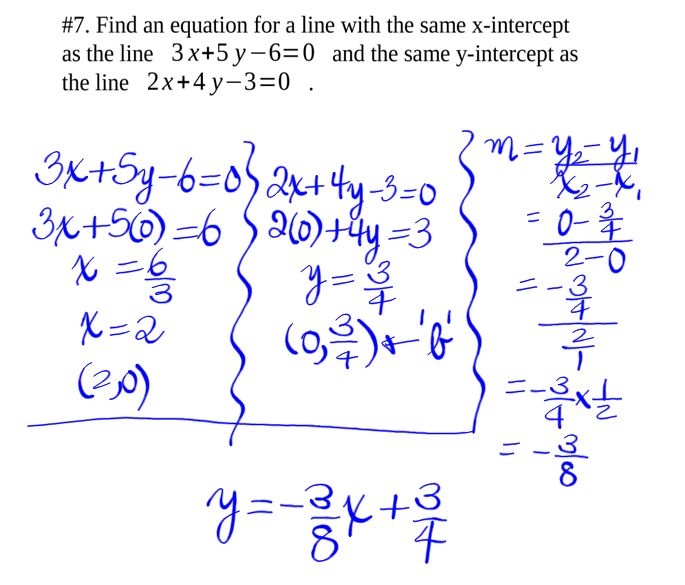 #7. Find an equation for a line with the same x-intercept
as the line 3x+5y−6=0 and the same y-intercept as
the line 2x+4y−3=0 .
3x+5y-6=0
3x+5(0)=6
x = 6/3
x=2
(2,0)
2x+4y-3=0
2(0)+4y=3
y= 3/4
(0,3/4)← 'b'
m = y₂-y₁/x₂-x₁
= 0-3/4 / 2-0
= -3/4 / 2/1
= -3/4 x 1/2
= -3/8
y = -3/8 x + 3/4